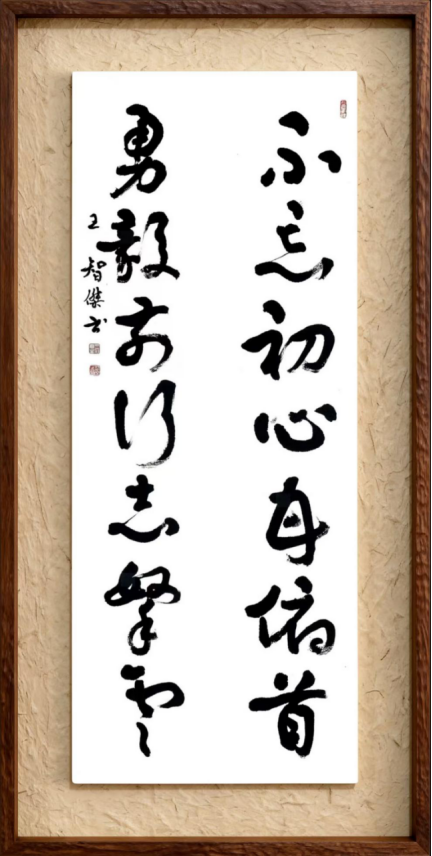 不忘初心身俯首
勇毅前行志拏雲
王智傑书